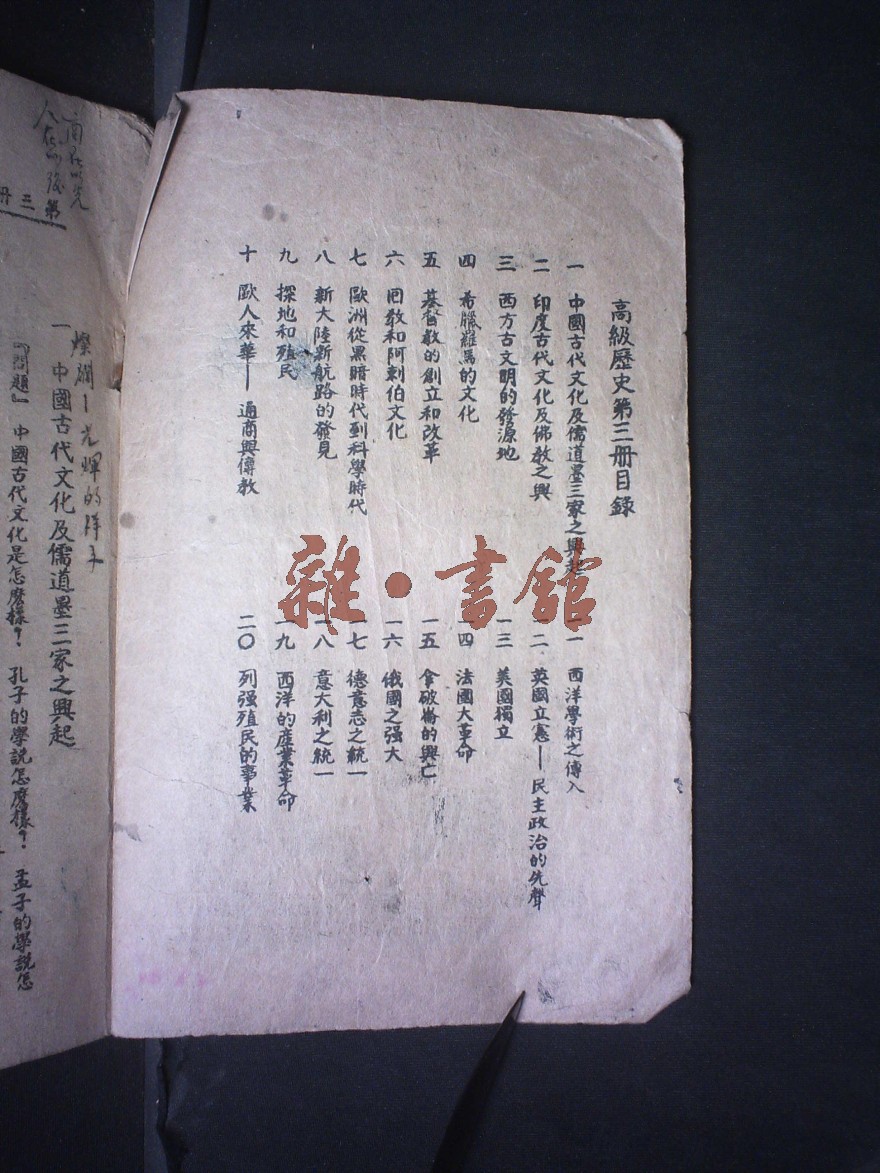 高級歷史第三册目錄
一 中國古代文化及儒道墨三家之興起
二 印度古代文化及佛教之興
三 西方古文明的發源地
四 希臘羅馬的文化
五 基督教的創立和改革
六 回教和阿剌伯文化
七 歐洲從黑暗時代到科學時代
八 新大陸新航路的發見
九 探地和殖民
十 歐人來華—通商與傳教
一一 西洋學術之傳入
一二 英國立憲—民主政治的先聲
一三 美國獨立
一四 法國大革命
一五 拿破崙的興亡
一六 俄國之强大
一七 德意志之統一
一八 意大利之統一
一九 西洋的產業革命
二〇 列强殖民的事業
雜·書館
第三册
燦爛—光輝的样子
一 中國古代文化及儒道墨三家之興起
『問題』 中國古代文化是怎麽樣？ 孔子的學説怎麽樣？ 孟子的學説怎